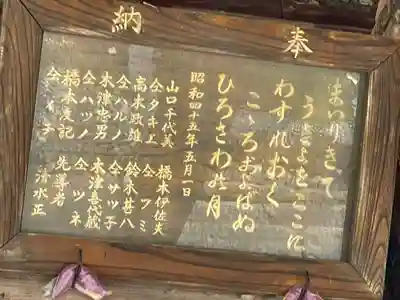 奉納
まいりきて
うきよをここに
わすれおく
こゝろおよばぬ
ひろさわの月
昭和四十五年五月一日
山口千代美 橋本伊佐夫
仝タキエ 仝ツミ
高木政雄 鈴木甚八
仝ハルノ 仝サツ子
木津忠男 木津喜心蔵
仝ハツノ 仝ツネ
橋本友記 先導者
清水正